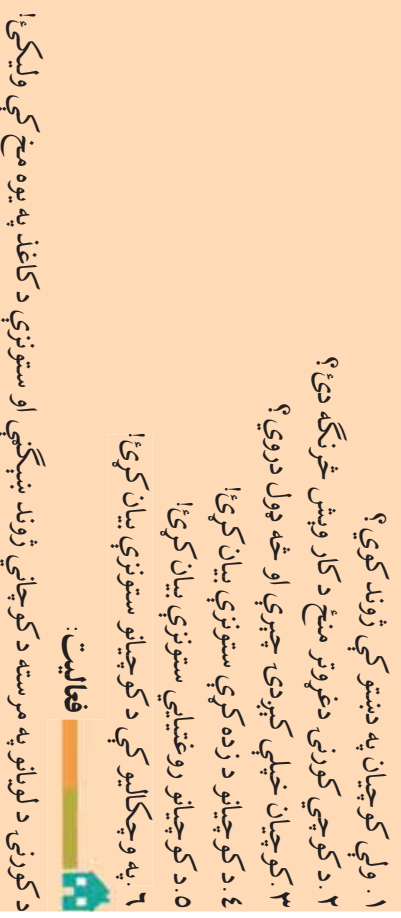 ۱. ولې کوچیان په دښتو کې ژوند کوي؟
۲. د کوچي کورنۍ دغړوتر منځ د کار وېش څرنګه دئ؟
۳. کوچیان خپلې کېږدۍ چېري او څه ډول دروي؟
٤. د کوچیانو د زده کړې ستونزې بیان کړئ!
۵. د کوچیانو روغتیایي ستونزې بیان کړئ!
٦. په وچکالیو کې د کوچیانو ستونزې بیان کړئ!
فعالیت:
د کورنۍ د لویانو په مرسته د کوچانې ژوند ښېګڼې او ستونزې د کاغذ په یوه مخ کې ولیکئ!